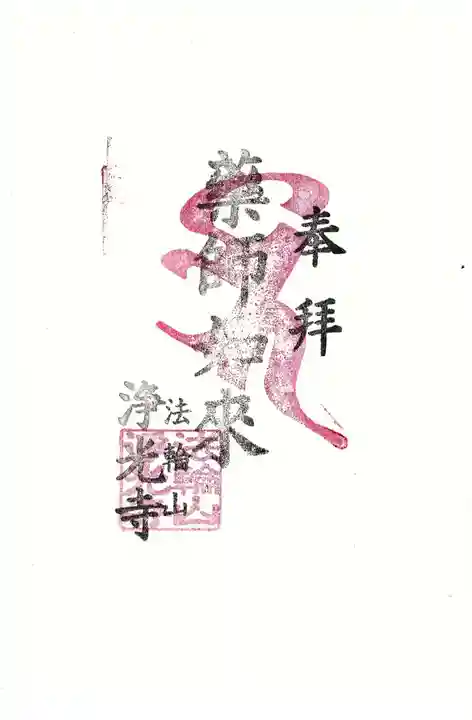 奉拜
薬師如來
法輪山
浄光寺